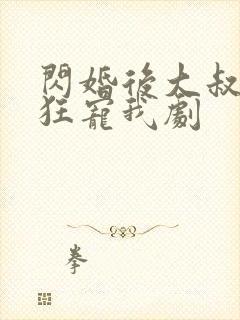 閃婚後大叔
狂寵我劇
拳